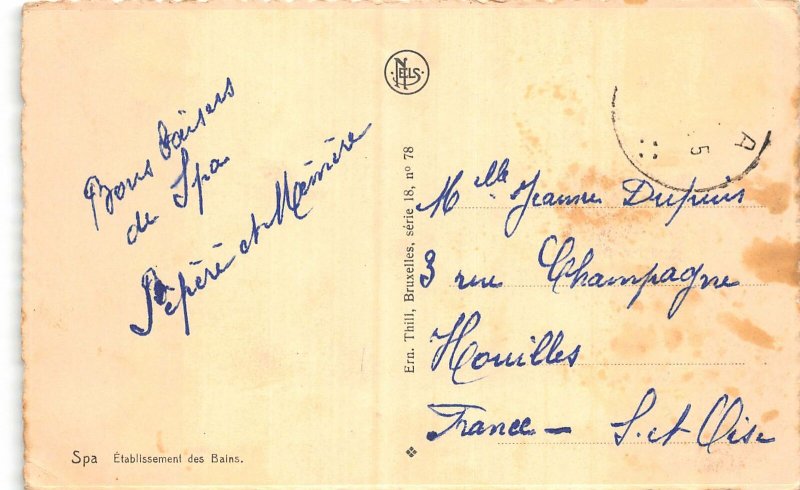 Bons baisers
de Spa
Pépère et Mémère
Spa Établissement des Bains.
NELS
Ern. Thill, Bruxelles, série 18, nº 78
A
5
Melle Jeanne Dupuis
3 rue Champagne
Houilles
France — S. et Oise